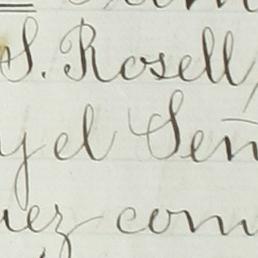 S. Rosell,
y el Señ
uez com